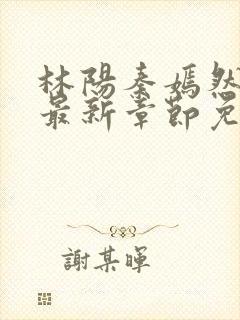 林陽秦嫣然
最新章節免
謝某暉